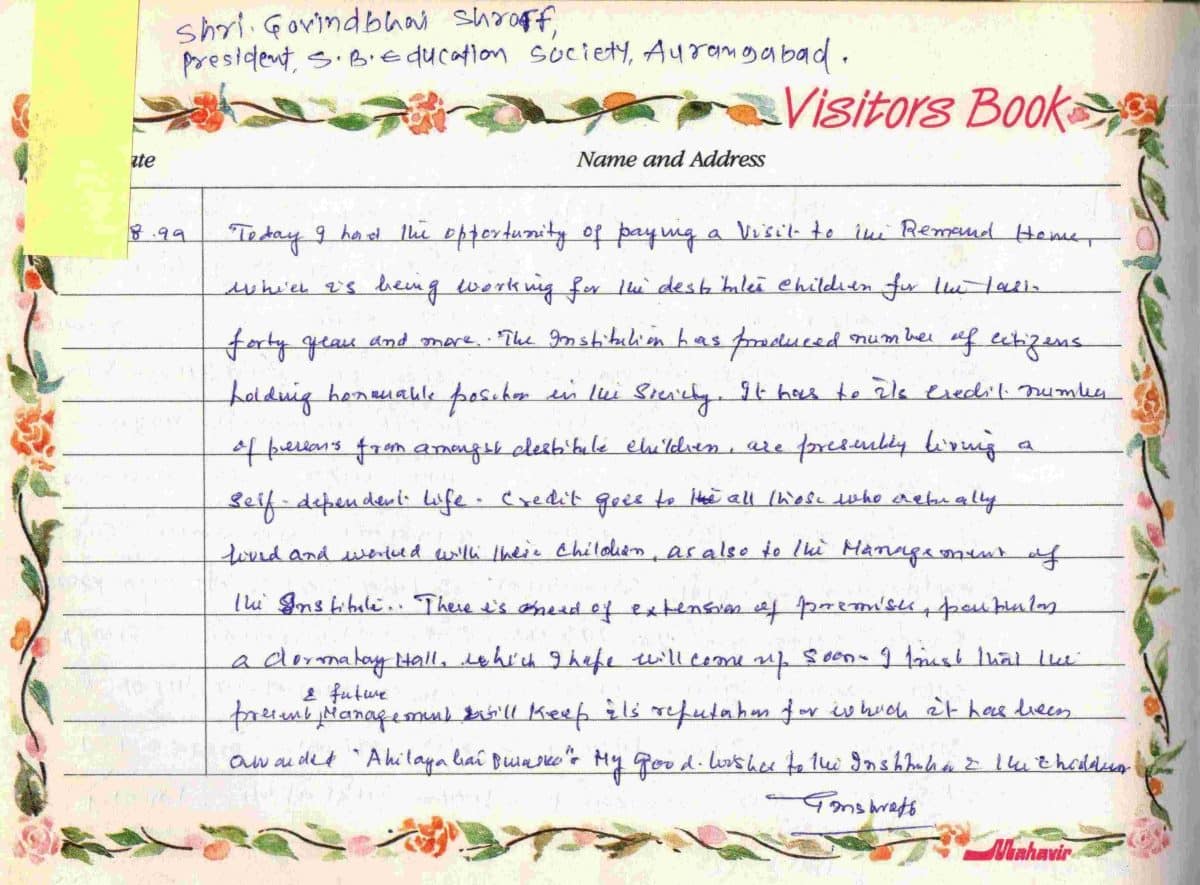 Shri. Govindbhai Shroff,
President, S.B. Education Society, Aurangabad.
Visitors Book
ate
Name and Address
8.99
Today I had the opportunity of paying a Visit to the Remand Home,
which is being working for the destitutes children for the last
forty years and more.. The Institution has produced number of citizens
holding honourable position in the Society. It has to its credit number
of persons from amongst destitute children, are presently living a
self-dependent life. Credit goes to the all those who actually
lived and worked with these children, as also to the Management of
the Institute.. There is need of extension of premises, particular
a dormatory Hall, which I hope will come up soon. I trust that the
& future
present, Management will keep its reputation for which it has been
awarded "Ahilayabai My good. wishes to the Institution & the children
Mahavir